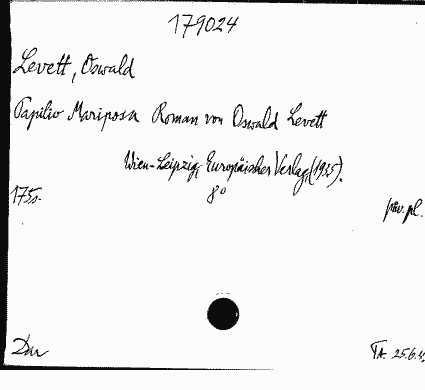 179024
Levett, Oswald
Papilio Mariposa Roman von Oswald Levett
Wien-Leipzig, Europäischer Verlag, (1935).
175 s. 8°
pův. pl.
Dar